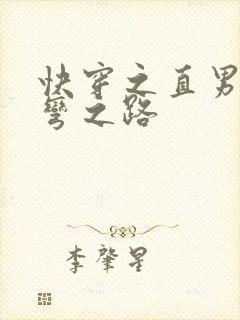 快穿之直男
弯之路
李肇星